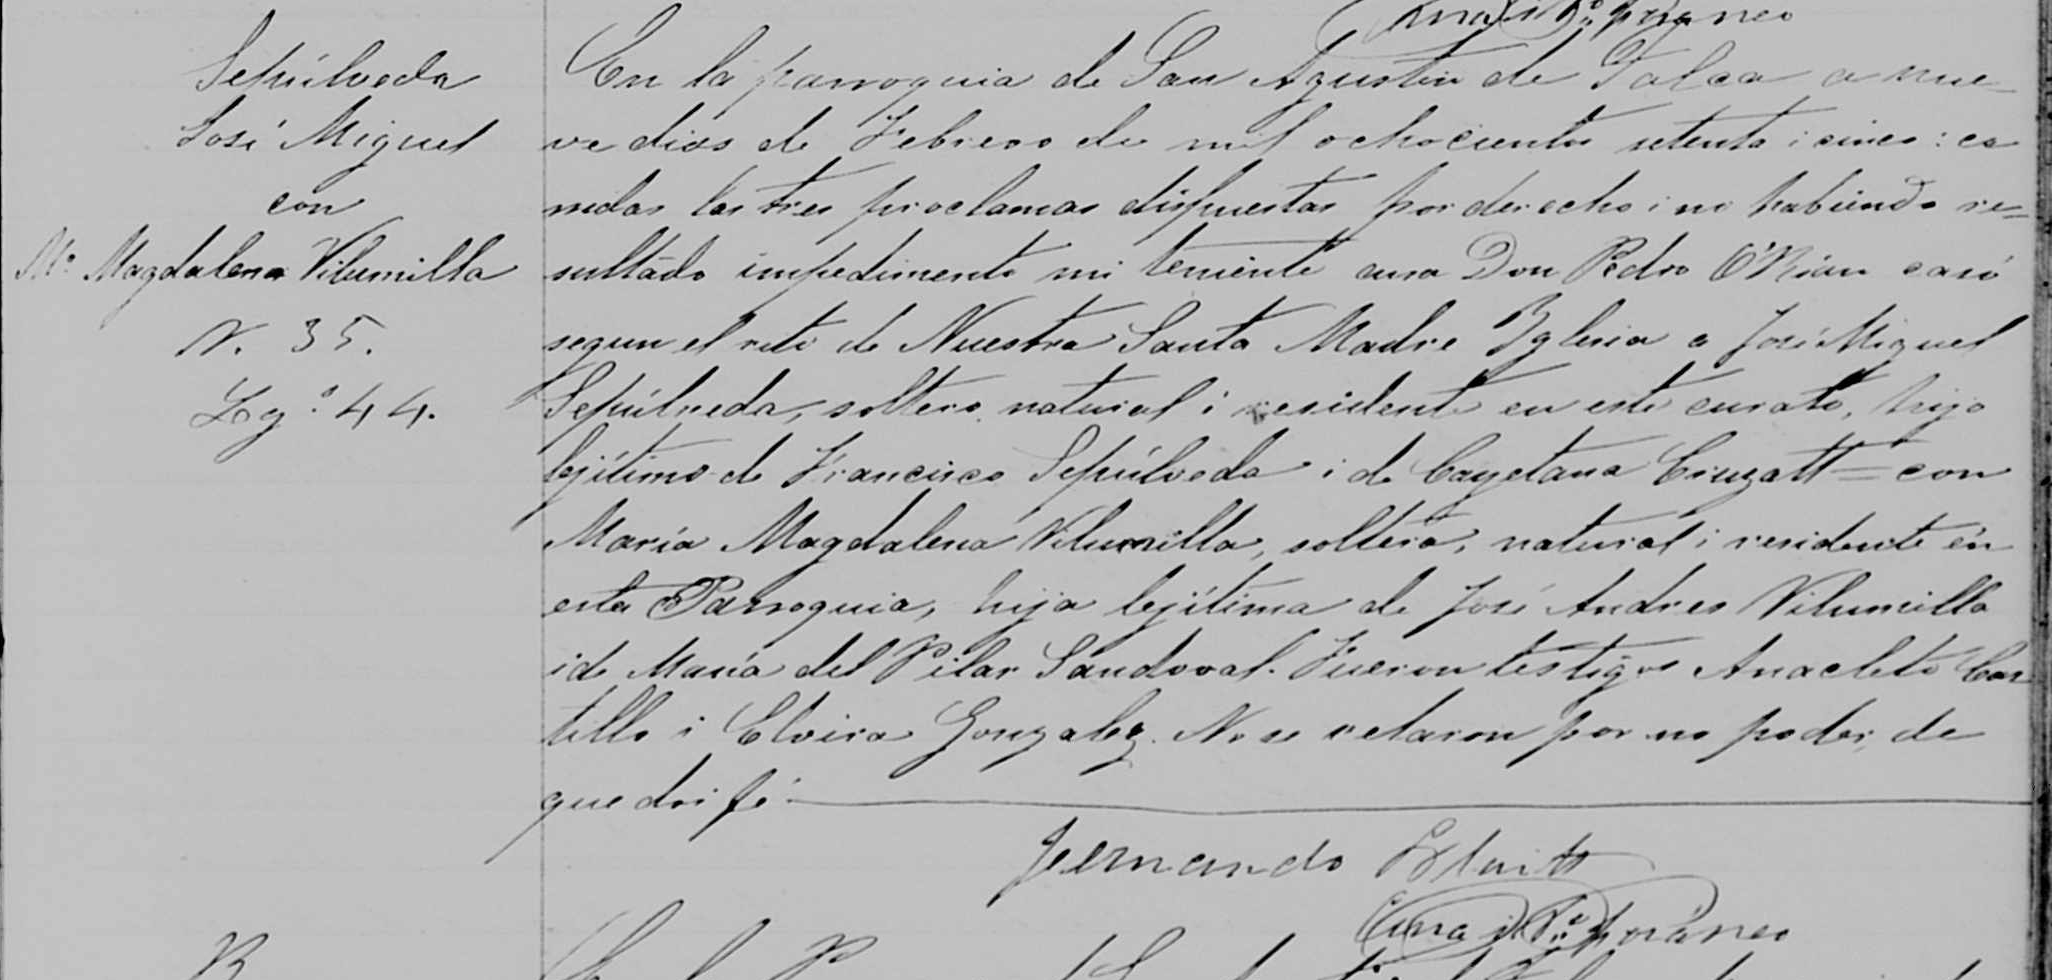 Cura i Vo. foráneo
Sepúlveda
José Miguel
con
Ma. Magdalena Vilumilla
N. 35.
Lgo. 44.
En la parroquia de San Agustin de Talca a nue-
ve dias de Febrero de mil ochocientos setenta i cinco: co
rridas las tres proclamas dispuestas por derecho i no habiendo re-
sultado impedimento mi teniente cura Don Pedro O'Rian casó
segun el rito de Nuestra Santa Madre Iglesia a José Miguel
Sepúlveda, soltero, natural i residente en este curato, hijo
lejítimo de Francisco Sepúlveda i de Cayetana Cruzatt = con
María Magdalena Vilumilla, soltera, natural i residente en
esta Parroquia, hija lejítima de José Andres Vilumilla
i de María del Pilar Sandoval. Fueron testigos Anacleto Cas
tillo i Elvira Gonzalez. No se velaron por no poder, de
que doi fé
Fernando
Cura i Vo. foráneo